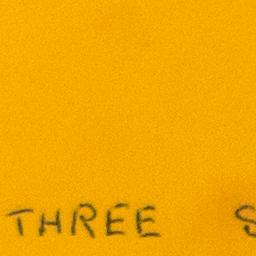 THREE S